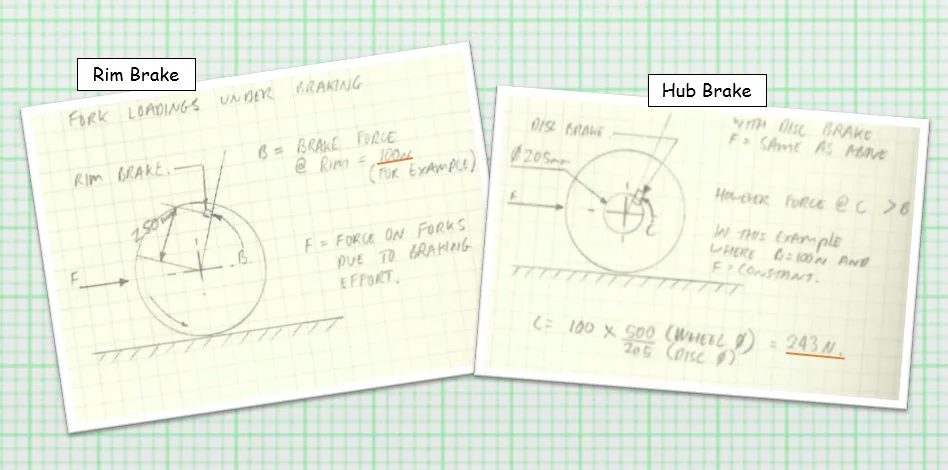 Rim Brake
FORK LOADINGS UNDER BRAKING
B = BRAKE FORCE
@ RIM = 100N
(FOR EXAMPLE)
RIM BRAKE.
250mm
B.
F
F = FORCE ON FORKS
DUE TO BRAKING
EFFORT.
Hub Brake
DISC BRAKE
WITH DISC BRAKE
F = SAME AS ABOVE
Ø205mm
F
C
HOWEVER FORCE @ C > B
IN THIS EXAMPLE
WHERE B=100N AND
F = CONSTANT.
C = 100 × 500 (WHEEL Ø) = 243N.
205 (DISC Ø)